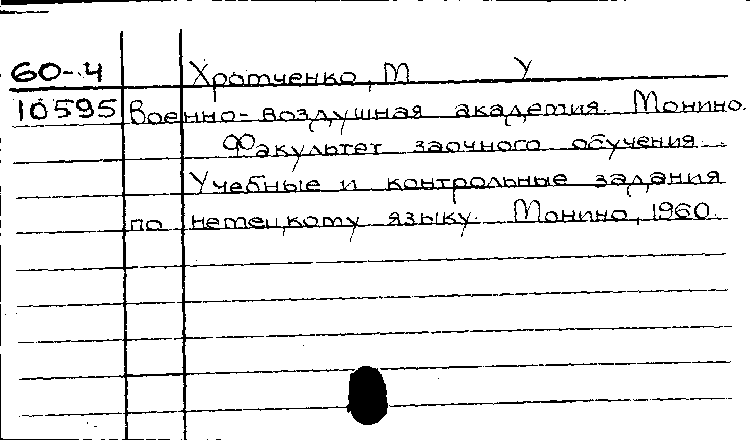 60-4 Хромченко, М У
10595 Военно-воздушная академия. Монино.
Факультет заочного обучения.
Учебные и контрольные задания
по немецкому языку. Монино, 1960.